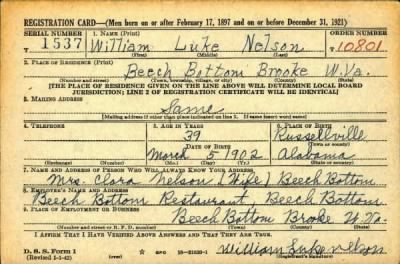 REGISTRATION CARD—(Men born on or after February 17, 1897 and on or before December 31, 1921)
SERIAL NUMBER 1. NAME (Print) ORDER NUMBER
1537 William Luke Nelson 10801
2. PLACE OF RESIDENCE (Print)
Beech Bottom Brooke W.Va.
(Number and street) (Town, township, village, or city) (County) (State)
[THE PLACE OF RESIDENCE GIVEN ON THE LINE ABOVE WILL DETERMINE LOCAL BOARD
JURISDICTION; LINE 2 OF REGISTRATION CERTIFICATE WILL BE IDENTICAL]
3. MAILING ADDRESS
Same
[Mailing address if other than place indicated on line 2. If same insert word same]
4. TELEPHONE 5. AGE IN YEARS 6. PLACE OF BIRTH
39 Russellville
DATE OF BIRTH (Town or county)
March 5 1902 Alabama
(Exchange) (Number) (Mo.) (Day) (Yr.) (State or country)
7. NAME AND ADDRESS OF PERSON WHO WILL ALWAYS KNOW YOUR ADDRESS
Mrs. Clara Nelson (Wife) Beech Bottom
8. EMPLOYER'S NAME AND ADDRESS
Beech Bottom Restaurant, Beech Bottom
9. PLACE OF EMPLOYMENT OR BUSINESS
Beech Bottom Brooke W.Va.
(Number and street or R. F. D. number) (Town) (County) (State)
I AFFIRM THAT I HAVE VERIFIED ABOVE ANSWERS AND THAT THEY ARE TRUE.
D. S. S. Form 1
(Revised 1-1-42) (over) GPO 16—21630-1 William Luke Nelson
(Registrant's signature)